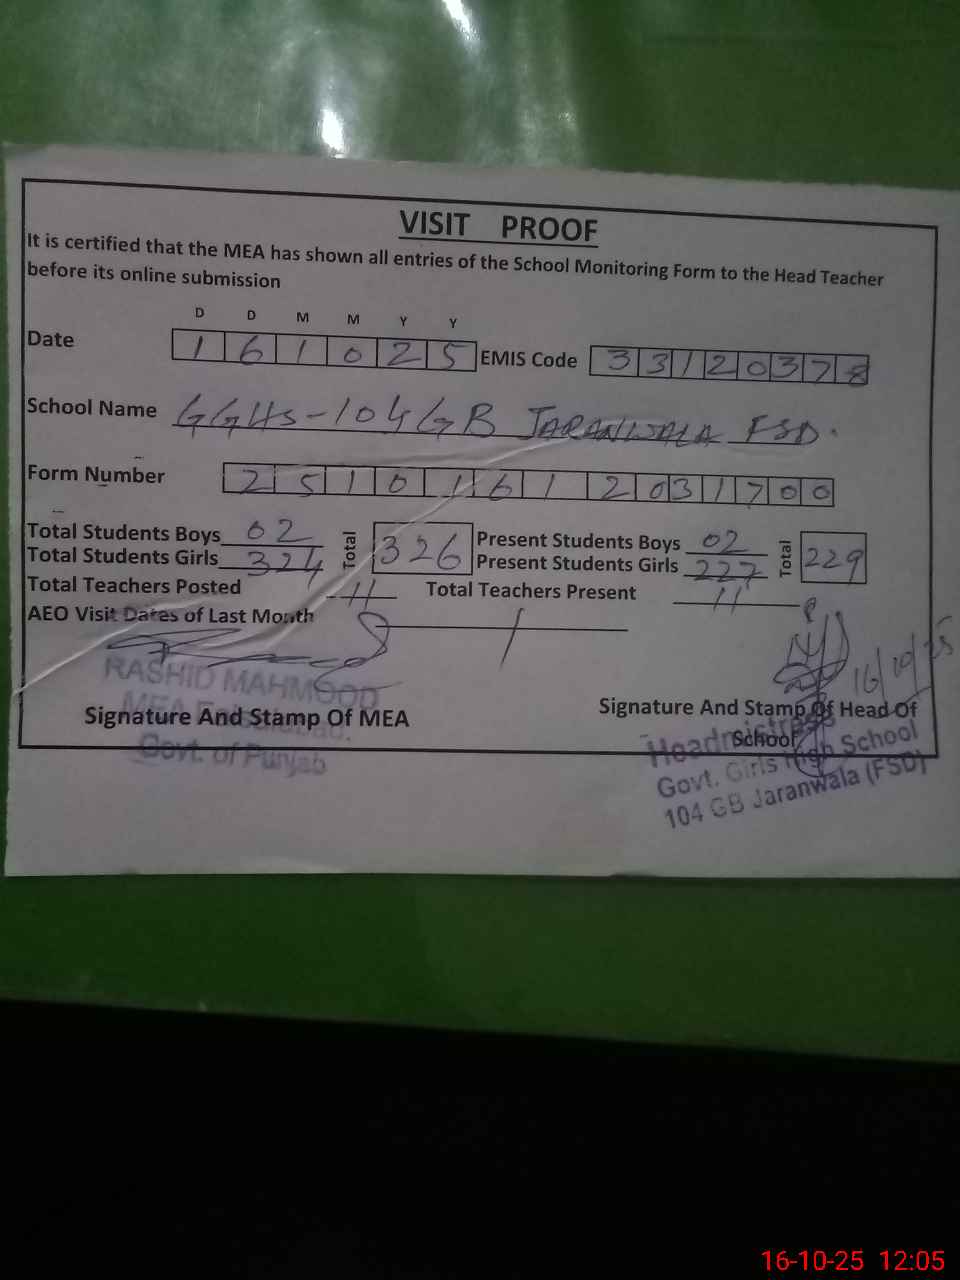 VISIT PROOF
It is certified that the MEA has shown all entries of the School Monitoring Form to the Head Teacher
before its online submission
D D M M Y Y
Date 1 6 1 0 2 5 EMIS Code 3 3 1 2 0 3 7 8
School Name GGHS-104 GB JARANWALA FSD.
Form Number 2 5 1 0 1 6 1 2 0 3 1 7 0 0
Total Students Boys 02 Total 326 Present Students Boys 02 Total 229
Total Students Girls 324 Present Students Girls 227
Total Teachers Posted 11 Total Teachers Present 11
AEO Visit Dates of Last Month
16/10/25
RASHID MAHMOOD
MEA Faisalabad.
Govt. of Punjab
Signature And Stamp Of MEA
Signature And Stamp Of Head Of
School
Headmistress
Govt. Girls High School
104 GB Jaranwala (FSD)
16-10-25 12:05